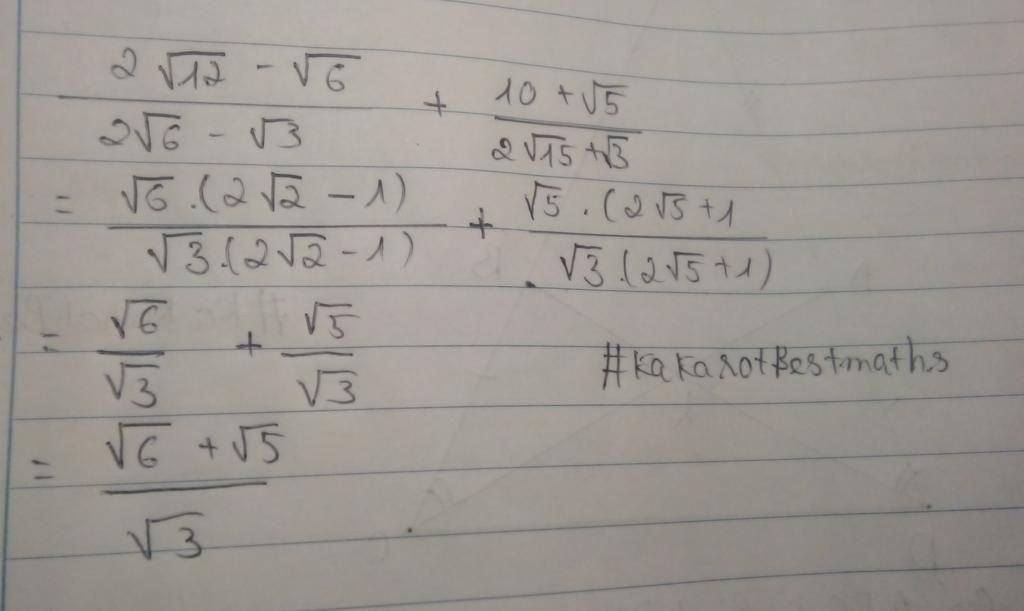 2√12 - √6 / 2√6 - √3 + 10 + √5 / 2√15 + √3
= √6 . (2√2 - 1) / √3 . (2√2 - 1) + √5 . (2√5 + 1 / √3 . (2√5 + 1)
= √6 / √3 + √5 / √3
#kakarotBestmaths
= √6 + √5 / √3